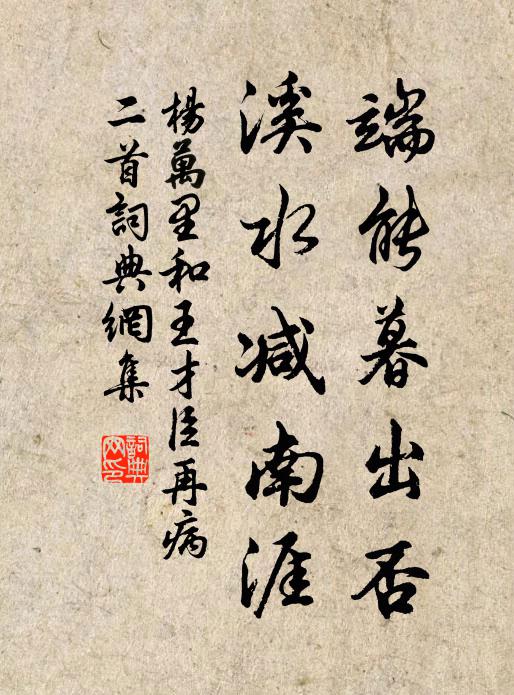 端能暮出否
溪水減南涯
楊萬里和王才臣再病
二首詞典網集
詞典
网印